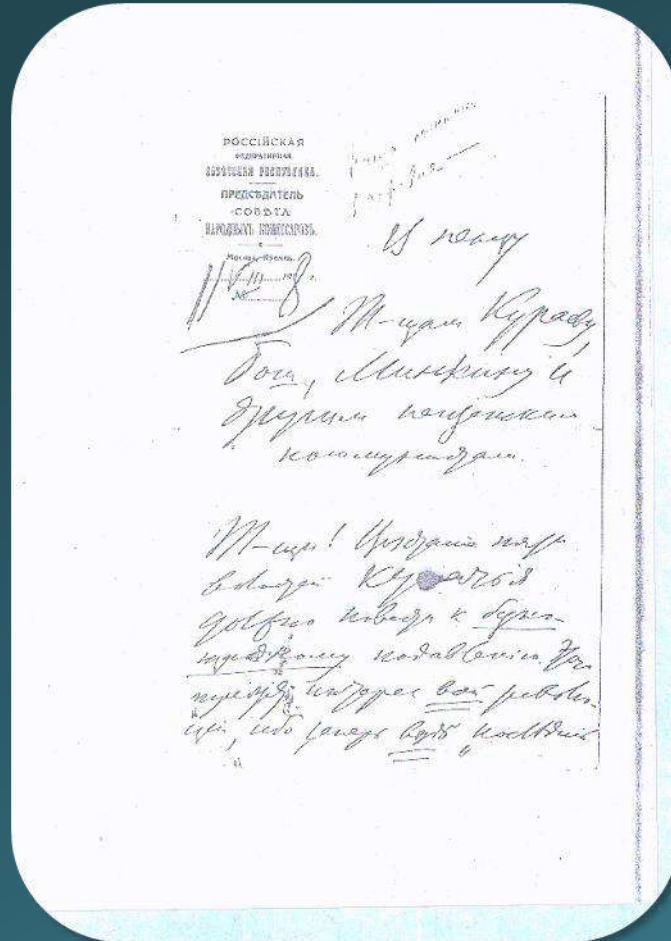 РОССІЙСКАЯ
ФЕДЕРАТИВНАЯ
СОВѢТСКАЯ РЕСПУБЛИКА.
ПРЕДСѢДАТЕЛЬ
СОВѢТА
НАРОДНЫХЪ КОМИССАРОВЪ.
Москва, Кремль.
11/VIII 1918 г.
№
В Пензу
Т-щам Кураеву,
Бош, Минкину и
другим пензенским
коммунистам.
Т-щи! Восстание пяти
волостей кулачья
должно повести к беспо-
щадному подавлению. Этого
требует интерес всей револю-
ции, ибо теперь „последний